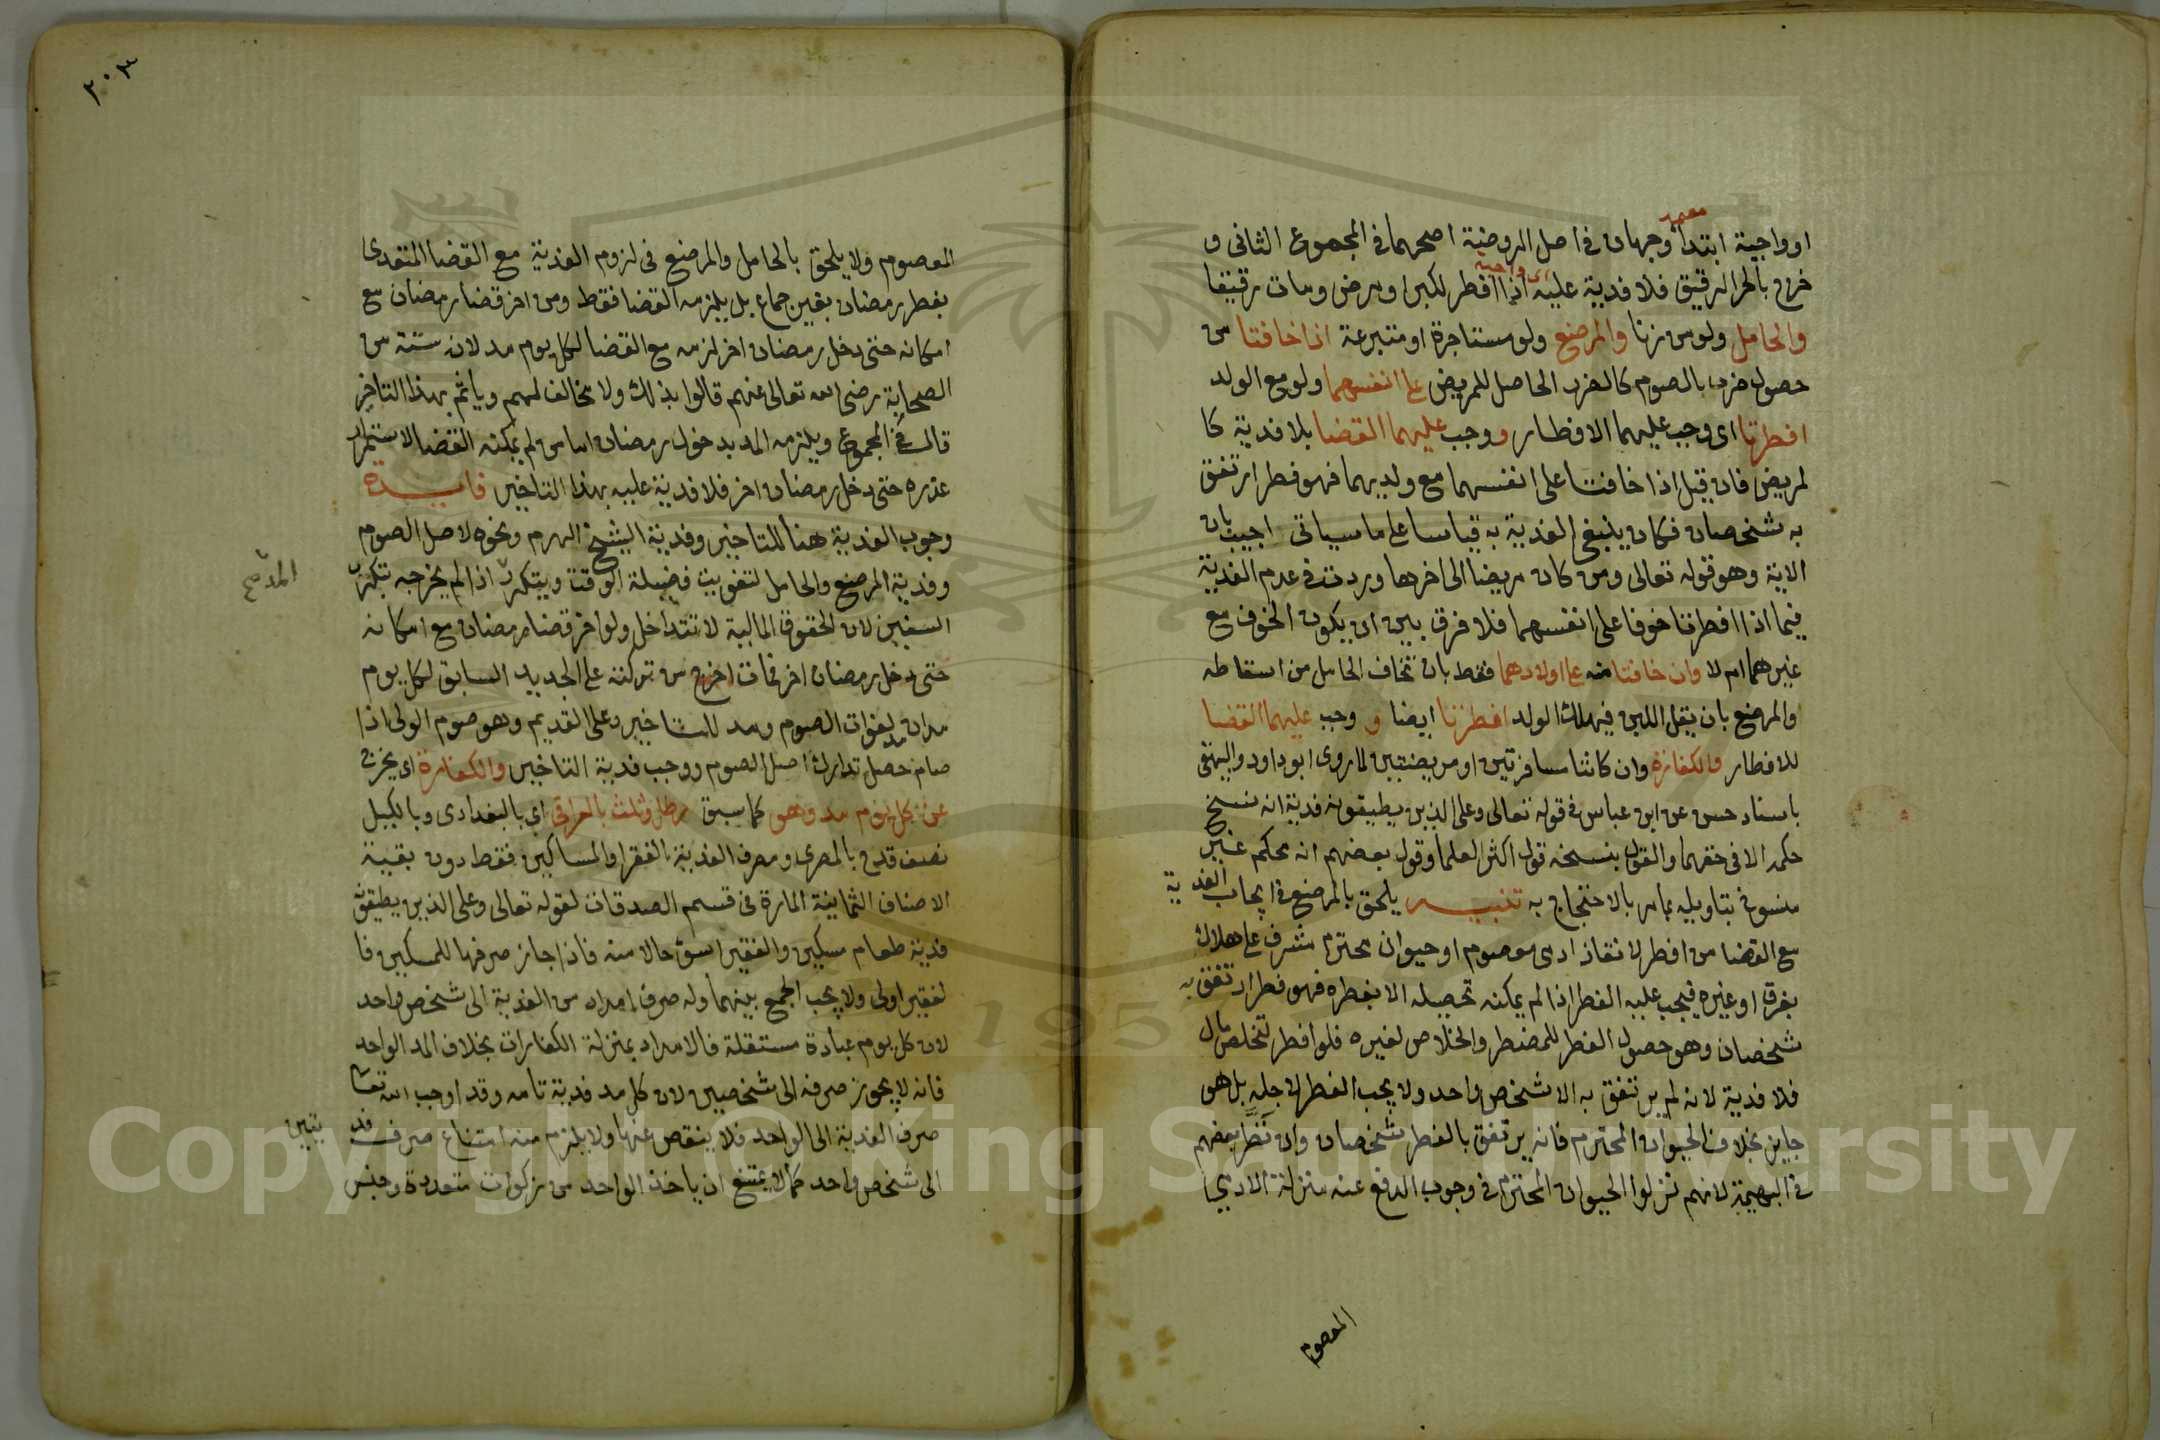 معتمد
او واجبة ابتداء وجهان في اصل الروضة اصحهما في المجموع الثاني و
اي واجبة
خرج بالحر الرقيق فلا فدية عليه اذا افطر لكبر او مرض ومات رقيقا
والحامل ولو من زنا والمرضع ولو مستاجرة او متبرعة اذا خافتا من
حصول ضرر بالصوم كالضرر الحاصل للمريض على انفسهما ولو مع الولد
افطرتا اي وجب عليهما الافطار و وجب عليهما القضا بلا فدية كا
لمريض فان قيل اذا خافتا على انفسهما مع ولديهما فهو فطر ارتفق
به شخصان فكان ينبغي الفدية به قياسا على ما سياتي اجيب بان
الاية وهو قوله تعالى ومن كان مريضا الى اخرها وردت في عدم الفدية
فيما اذا افطرتا خوفا على انفسهما فلا فرق بين ان يكون الخوف مع
غيرهما ام لا وان خافتا منه على اولادهما فقط بان تخاف الحامل من اسقاطه
والمرضع بان يقل اللبن فيهلك الولد افطرتا ايضا و وجب عليهما القضا
للافطار والكفارة وان كانتا مسافرتين او مريضتين لما روى ابو داود والبيهقي
باسناد حسن عن ابن عباس في قوله تعالى وعلى الذين يطيقونه فدية انه نسخ
حكمه الا في حقهما والقول بنسخه قول اكثر العلما وقول بعضهم انه محكم غير
منسوخ بتاويله بما مر بالاحتجاج به تنبيه يلحق بالمرضع في ايجاب الفدية
مع القضا من افطر لانقاذ ادمي معصوم او حيوان محترم مشرف على هلاك
بغرق او غيره فيجب عليه الفطر اذا لم يمكنه تحصيله الا بفطره فهو فطر ارتفق به
شخصان وهو حصول الفطر للمفطر والخلاص لغيره فلو افطر لتخلص مال
فلا فدية لانه لم يرتفق به الا شخص واحد ولا يجب الفطر لاجله بل هو
جايز بخلاف الحيوان المحترم فانه يرتفق بالفطر شخصان وان نظر بعضهم
في البهيمة لانهم نزلوا الحيوان المحترم في وجوب الدفع عنه منزلة الادمي
المعصوم
٢٠٣
المعصوم ولا يلحق بالحامل والمرضع في لزوم الفدية مع القضا المتعدي
بفطر رمضان بغير جماع بل يلزمه القضا فقط ومن اخر قضا رمضان مع
امكانه حتى دخل رمضان اخر لزمه مع القضا لكل يوم مد لان ستة من
الصحابة رضي الله تعالى عنهم قالوا بذلك ولا مخالف لهم وياثم بهذا التاخير
قال في المجموع ويلزمه المد بدخول رمضان اما من لم يمكنه القضا لاستمرار
عذره حتى دخل رمضان اخر فلا فدية عليه بهذا التاخير فايدة
وجوب الفدية هنا للتاخير وفدية الشيخ الهرم ونحوه لاصل الصوم
وفدية المرضع والحامل لتفويت فضيلة الوقت ويتكرر اذا لم يخرجه بتكرر
المد صح
السنين لان الحقوق المالية لا تتداخل ولو اخر قضا رمضان مع امكانه
حتى دخل رمضان اخر فمات اخرج من تركته على الجديد السابق لكل يوم
مدان مد لفوات الصوم ومد للتاخير وعلى القديم وهو صوم الولي اذا
صام حصل تدارك اصل الصوم ووجب فدية التاخير والكفارة اي يخرج
عن كل يوم مد وهو كما سبق رطل وثلث بالعراقي اي بالبغدادي وبالكيل
نصف قدح بالمصري ومصرف الفدية الفقرا والمساكين فقط دون بقية
الاصناف الثمانية المارة في قسم الصدقات لقوله تعالى وعلى الذين يطيقونه
فدية طعام مسكين والفقير اسوء حالا منه فاذا جاز صرفها للمسكين فا
لفقير اولى ولا يجب الجمع بينهما وله صرف امداد من الفدية الى شخص واحد
لان كل يوم عبادة مستقلة فالامداد بمنزلة الكفارات بخلاف المد الواحد
فانه لا يجوز صرفه الى شخصين لان كل مد فدية تامه وقد اوجب الله تعالى
صرف الفدية الى الواحد فلا ينقص عنها ولا يلزم منه امتناع صرف فديتين
الى شخص واحد كما لا يمتنع ان ياخذ الواحد من زكوات متعددة وجنس
Copyright © King Saud University
195